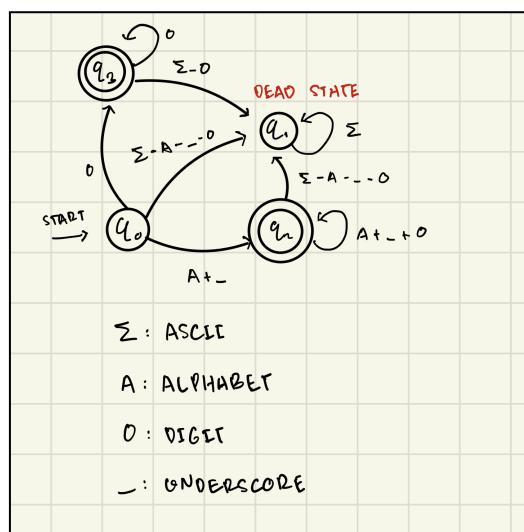 0
q3
Σ-0
DEAD STATE
q1
Σ
Σ-A-_-0
0
Σ-A-_-0
START
q0
A+_
A+_+0
Σ: ASCII
A: ALPHABET
0: DIGIT
_: UNDERSCORE